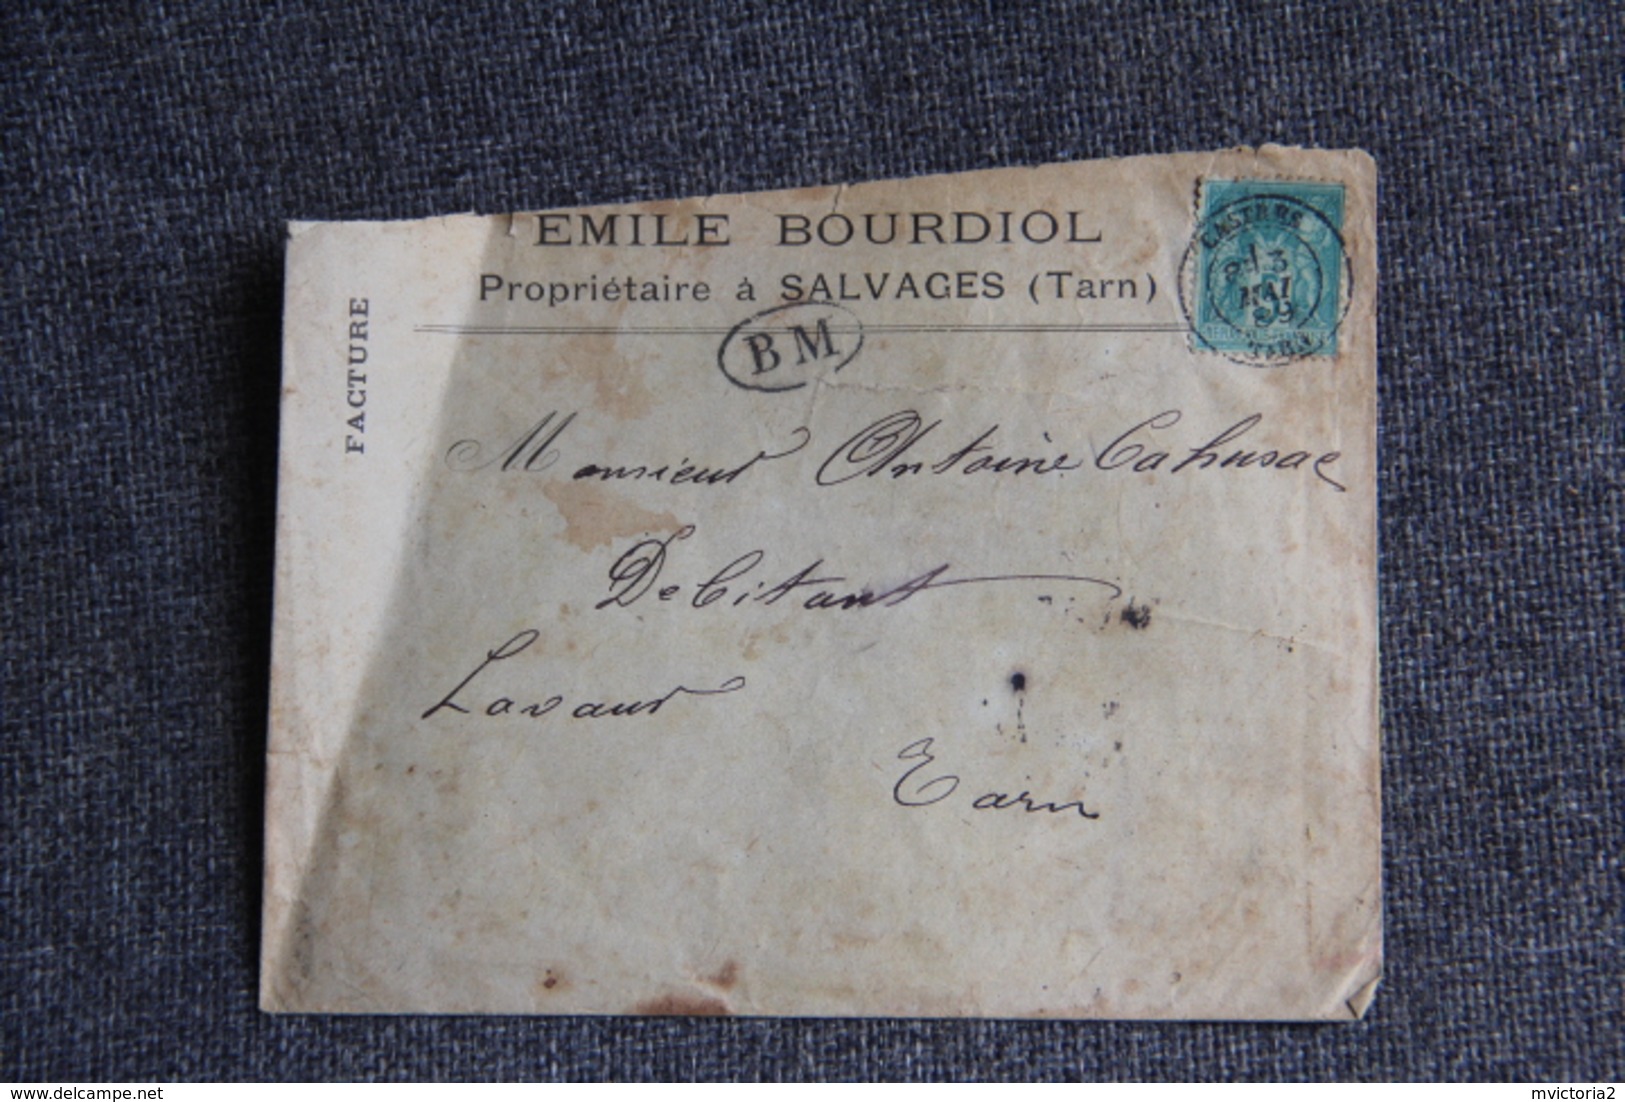 EMILE BOURDIOL
Propriétaire à SALVAGES (Tarn)
FACTURE
BM
CASTRES
3
MAI
89
TARN
Monsieur Antoine Cahusac
Debitant
Lavaur
Tarn
delcampe.net
mvictoria2